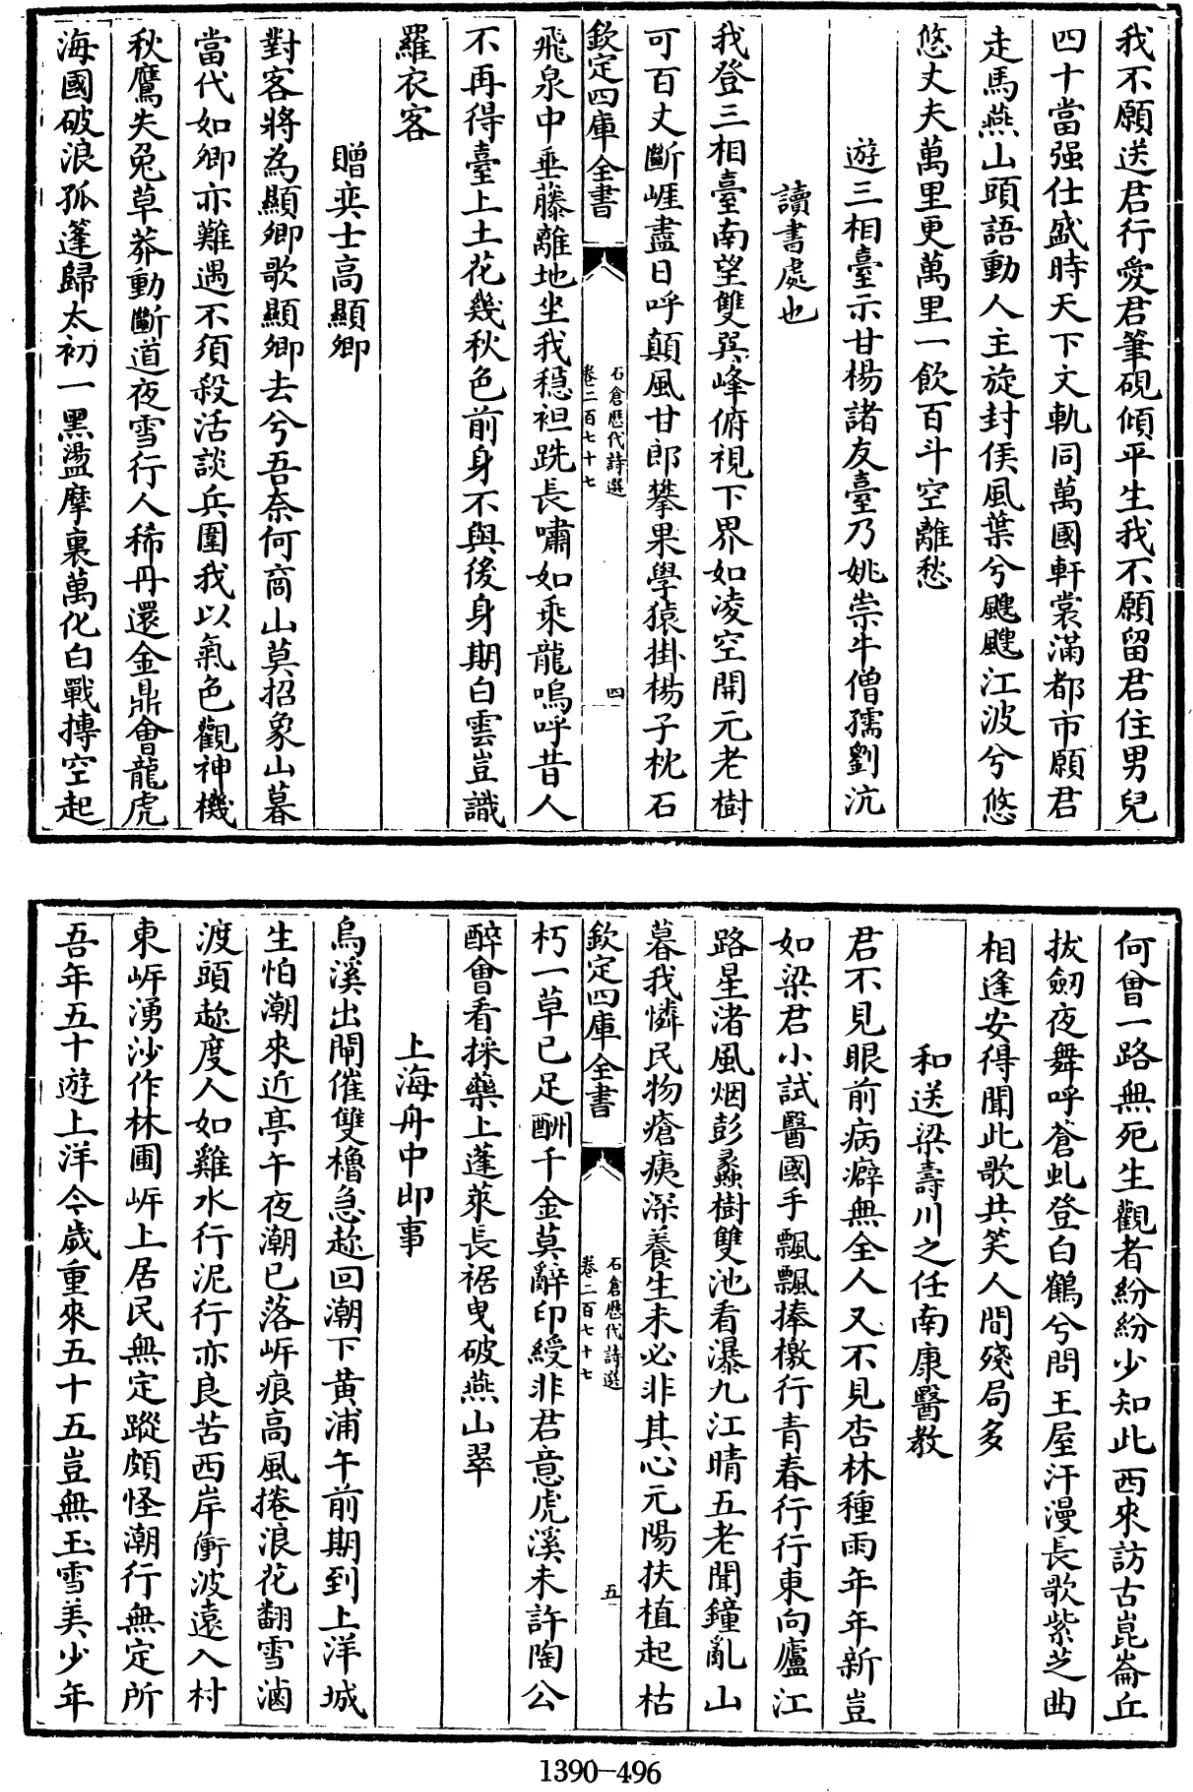 我不願送君行愛君筆硯傾平生我不願留君住男兒
四十當强仕盛時天下文軌同萬國軒裳滿都市願君
走馬燕山頭語動人主旋封侯風葉兮颼颼江波兮悠
悠丈夫萬里更萬里一飲百斗空離愁
遊三相臺示甘楊諸友臺乃姚崇牛僧孺劉沆
讀書處也
我登三相臺南望雙巽峰俯視下界如凌空開元老樹
可百丈斷崖盡日呼顛風甘郎攀果學猿掛楊子枕石
欽定四庫全書
石倉歷代詩選
卷二百七十七
四
飛泉中垂藤離地坐我穩袒跣長嘯如乘龍嗚呼昔人
不再得臺上土花幾秋色前身不與後身期白雲豈識
羅衣客
贈奕士高顯卿
對客將為顯卿歌顯卿去兮吾奈何商山莫招象山暮
當代如卿亦難遇不須殺活談兵圍我以氣色觀神機
秋鷹失兔草莽動斷道夜雪行人稀丹還金鼎會龍虎
海國破浪孤篷歸太初一黑盪摩裏萬化白戰摶空起
何曾一路無死生觀者紛紛少知此西來訪古崑崙丘
拔劒夜舞呼蒼虬登白鶴兮問王屋汗漫長歌紫芝曲
相逢安得聞此歌共笑人間殘局多
和送梁壽川之任南康醫教
君不見眼前病癖無全人又不見杏林種雨年年新豈
如梁君小試醫國手飄飄捧檄行青春行行東向廬江
路星渚風烟彭蠡樹雙池看瀑九江晴五老聞鐘亂山
暮我憐民物瘡痍深養生未必非其心元陽扶植起枯
欽定四庫全書
石倉歷代詩選
卷二百七十七
五
朽一草已足酬千金莫辭印綬非君意虎溪未許陶公
醉會看採藥上蓬萊長裾曳破燕山翠
上海舟中即事
烏溪出閘催雙櫓急趂回潮下黄浦午前期到上洋城
生怕潮來近亭午夜潮已落㟁痕高風捲浪花翻雪滷
渡頭趂度人如雞水行泥行亦良苦西岸衝波遠入村
東㟁湧沙作林圃㟁上居民無定蹤頗怪潮行無定所
吾年五十遊上洋今歲重來五十五豈無玉雪美少年
1390-496